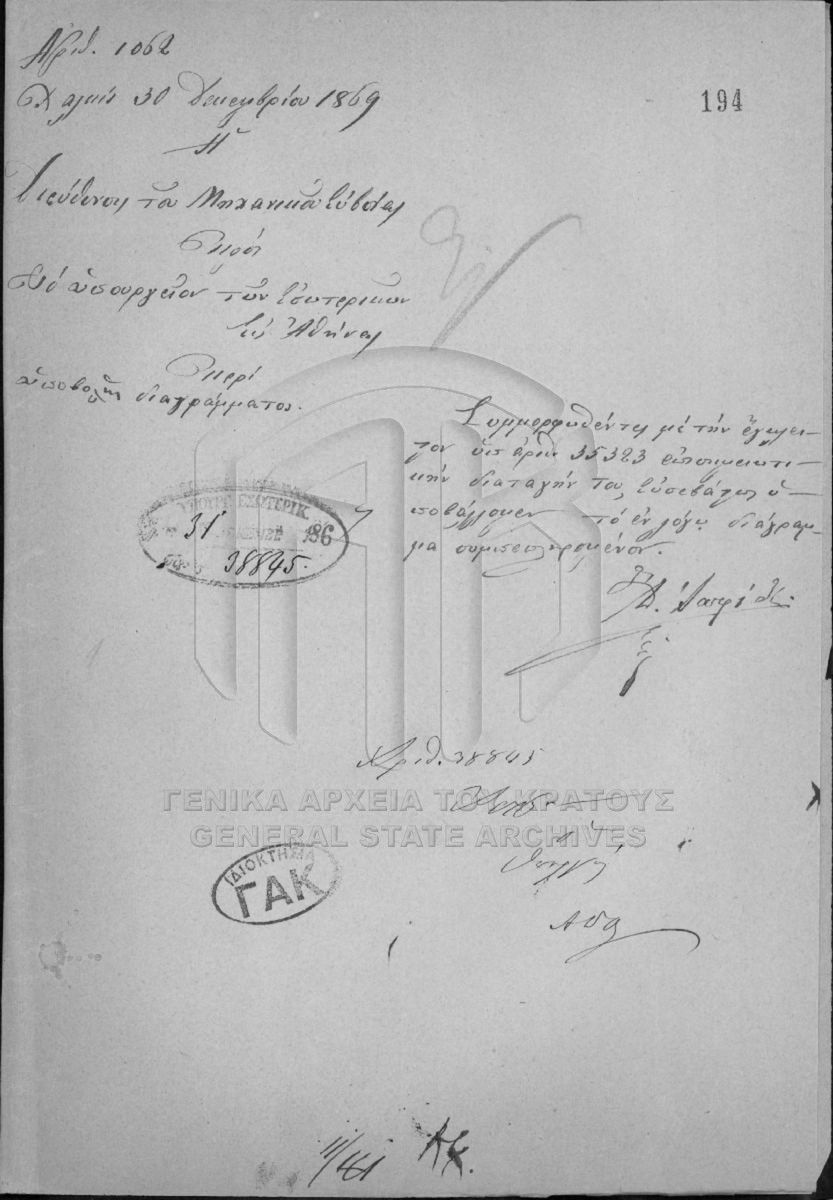 Ἀριθ. 1062
194
Χαλκὶς 30 Δεκεμβρίου 1869
Ἡ
Διεύθυνσις τοῦ Μηχανικοῦ Εὐβοίας
Πρὸς
Τὸ ὑπουργεῖον τῶν Ἐσωτερικῶν
Εἰς Ἀθήνας
Περὶ
ὑποβολῆς διαγράμματος.
Συμμορφωθέντες μὲ τὴν ἔγκλει-
στον ὑπ' ἀριθ. 35323 ἐπισημειωτι-
κὴν διαταγήν του, εὐσεβάστως ὑ-
ποβάλλομεν τὸ ἐν λόγῳ διάγραμ-
μα συμπεπληρωμένον.
ΥΠΟΥΡΓ. ΕΣΩΤΕΡΙΚ.
31 186
38845.
Ἀριθ. 38845
ΓΕΝΙΚΑ ΑΡΧΕΙΑ ΤΟΥ ΚΡΑΤΟΥΣ
GENERAL STATE ARCHIVES
ΙΔΙΟΚΤΗΣΙΑ
ΓΑΚ